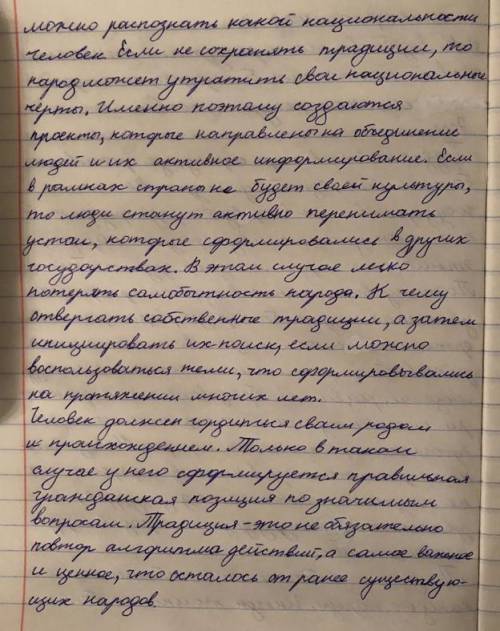 можно распознать какой национальности
человек. Если не сохранять традиции, то
народ может утратить свои национальные
черты. Именно поэтому создаются
проекты, которые направлены на объединение
людей и их активное информирование. Если
в рамках страны не будет своей культуры,
то люди станут активно перенимать
устои, которые сформировались в других
государствах. В этом случае легко
потерять самобытность народа. К чему
отвергать собственные традиции, а затем
инициировать их поиск, если можно
воспользоваться теми, что сформировывались
на протяжении многих лет.
Человек должен гордиться своим родом
и происхождением. Только в таком
случае у него сформируется правильная
гражданская позиция по значимым
вопросам. Традиция - это не обязательно
повтор алгоритма действий, а самое важное
и ценное, что осталось от ранее существую-
щих народов.